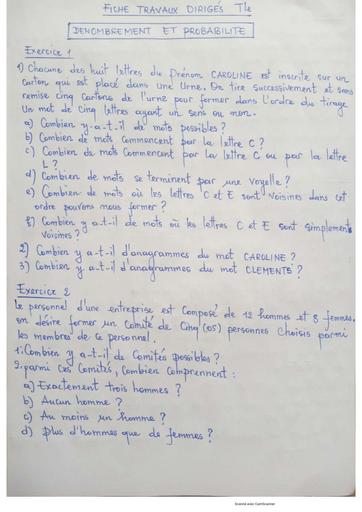 FICHE TRAVAUX DIRIGÉS Tle
DENOMBREMENT ET PROBABILITE
Exercice 1
1) Chacune des huit lettres du Prénom CAROLINE est inscrite sur un
carton qui est placé dans une Urne. On tire successivement et sans
remise cinq cartons de l'urne pour former dans l'ordre du tirage
Un mot de Cinq lettres ayant un sens ou non.
a) Combien y-a-t-il de mots possibles ?
b) Combien de mots commencent par la lettre C ?
c) Combien de mots commencent par la lettre C ou par la lettre
L ?
d) Combien de mots se terminent par une voyelle ?
e) Combien de mots où les lettres C et E sont voisines dans cet
ordre pouvons nous former ?
f) Combien y a-t-il de mots où les lettres C et E sont simplement
Voisines ?
2) Combien y a-t-il d'anagrammes du mot CAROLINE ?
3) Combien y a-t-il d'anagrammes du mot CLEMENTS ?
Exercice 2
Le personnel d'une entreprise est Composé de 12 hommes et 8 femmes.
on désire former un Comité de Cinq (05) personnes Choisis parmi
les membres de ce personnel.
1. Combien y a-t-il de Comités possibles ?
2. parmi Ces Comités, Combien Comprennent :
a) Exactement trois hommes ?
b) Aucun homme ?
c) Au moins un homme ?
d) Plus d'hommes que de femmes ?
Scanné avec CamScanner